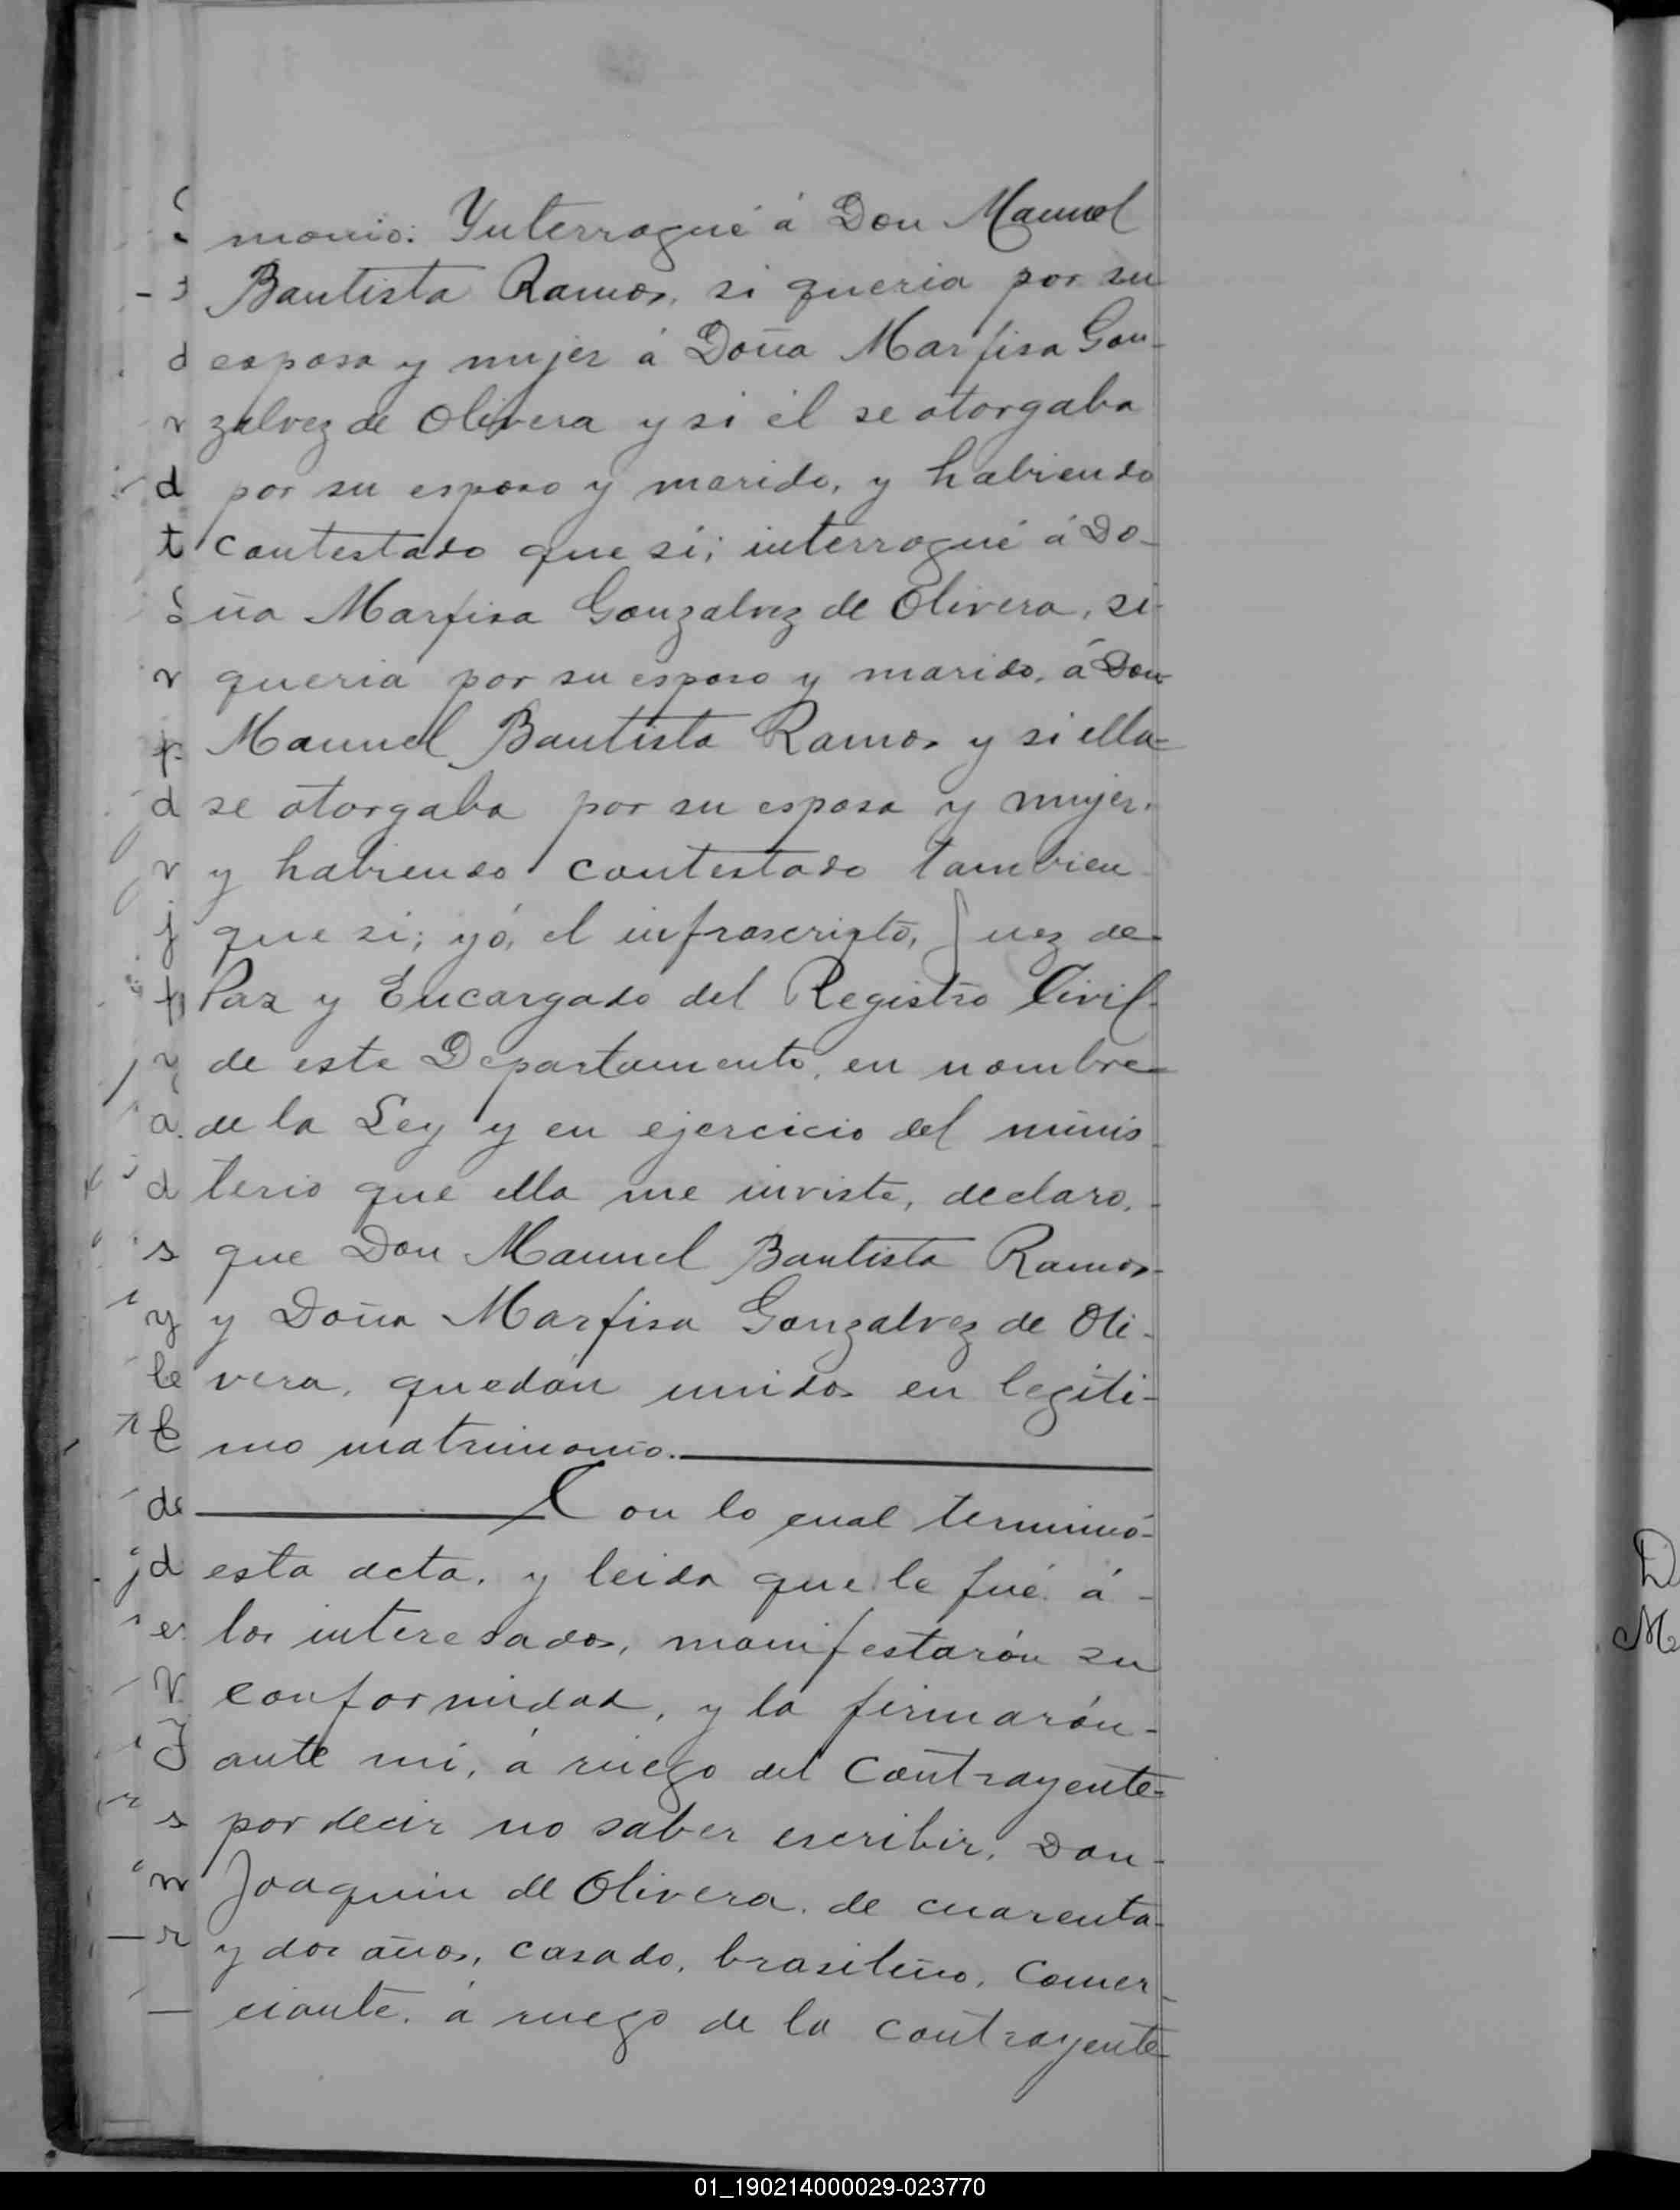 monio. Ynterrogué á Don Manuel
Bautista Ramos, si queria por su
esposa y mujer á Doña Marfisa Gon-
zalvez de Olivera y si él se otorgaba
por su esposo y marido, y habiendo
contestado que si; interrogué á Do-
ña Marfisa Gonzalvez de Olivera, si
queria por su esposo y marido, á Don
Manuel Bautista Ramos y si ella
se otorgaba por su esposa y mujer,
y habiendo contestado tambien
que si; yó, el infrascripto, Juez de
Paz y Encargado del Registro Civil
de este Departamento, en nombre
de la Ley y en ejercicio del minis-
terio que ella me inviste, declaro,
que Don Manuel Bautista Ramos
y Doña Marfisa Gonzalvez de Oli-
vera, quedán unidos en legíti-
mo matrimonio.
Con lo cual terminó
esta acta, y leida que le fué á
los interesados, manifestarón su
conformidad, y la firmarón
ante mi, á ruego del Contrayente
por decir no saber escribir, Don
Joaquin de Olivera, de cuarenta
y dos años, casado, brasileño, Comer-
ciante, á ruego de la contrayente
01_190214000029-023770